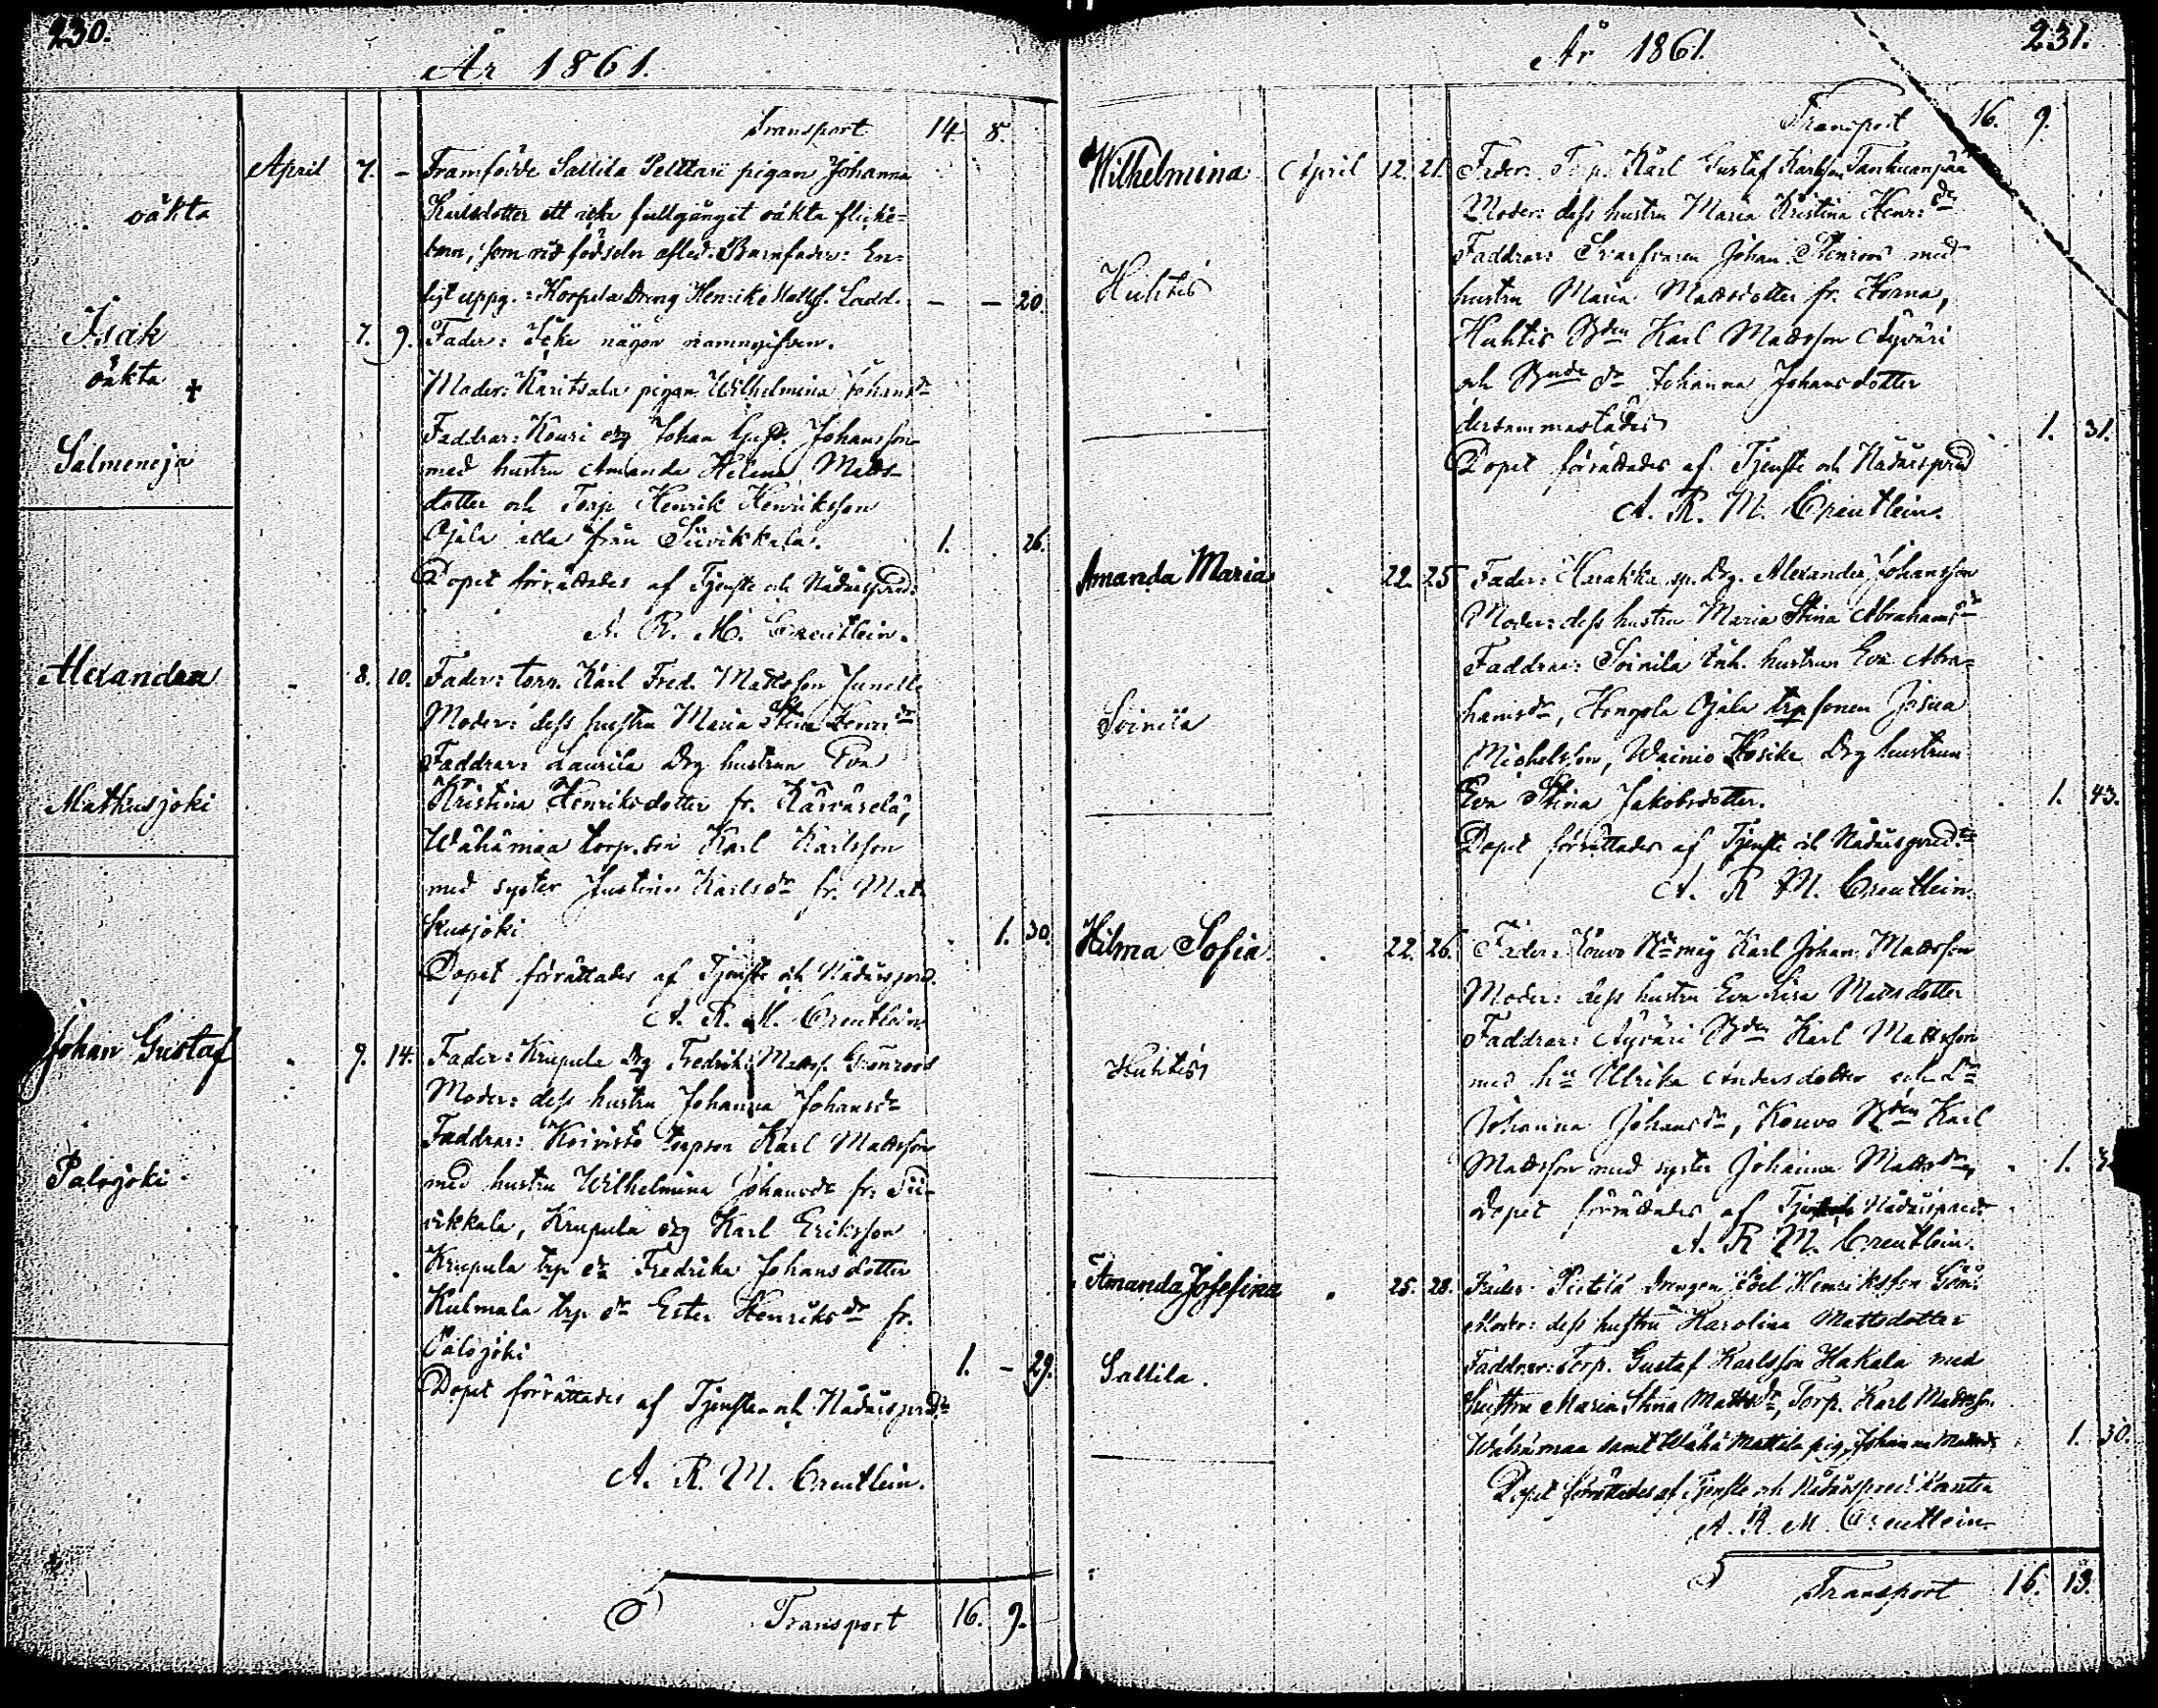 230.
År 1861.
Transport 14. 8.
April 7. - Framfödde Sallila Pelttari pigan Johanna
oäkta
Karlsdotter ett icke fullgånget oäkta flicke-
barn, som vid födseln afled. Barnfader: En-
ligt uppg.: Korpela Dreng Henrik Mattss. Ladd. - - 20.
Isak 7. 9. Fader: Icke någon namngifven.
oäkta +
Moder: Karitsala pigan Wilhelmina Johansdr
Salmeneja
Faddrar: Kouri drg Johan Gust. Johansson
med hustru Amanda Helena Matts-
dotter och Torp. Henrik Henriksson
Ojala alla från Suvikkala. 1. 26.
Dopet förrättades af Tjenste och Nådårspred:
A. R. M. Creutlein.
Alexandra 8. 10. Fader: torp. Karl Fred. Mattsson Junell
Moder: dess hustru Maria Stina Henr:dr
Faddrar: Laurila Drg hustrun Eva
Mathusjoki
Kristina Henriksdotter fr. Karvasela,
Wähämaa torp.son Karl Karlsson
med syster Justina Karlsdr fr. Mat-
kusjoki 1. 30.
Dopet förrättades af Tjenste och Nådårspred.
A. R. M. Creutlein
Johan Gustaf 9. 14. Fader: Krupula drg Fredrik Mattss. Grönroos
Moder: dess hustru Johanna Johansdr
Faddrar: Koivisto torpson Karl Mattsson
Palojoki
med hustru Wilhelmina Johansdr fr. Su-
vikkala, Krupula drg Karl Eriksson
Krupula trp dr Fredrika Johansdotter
Kulmala trp dr Ester Henriksdr fr.
Palojoki 1. - 29.
Dopet förrättades af Tjenste och Nådårspredr
A. R. M. Creutlein.
Transport 16. 9.
År 1861.
231.
Transport 16. 9.
Wilhelmina April 12. 21. Fader: Torp. Karl Gustaf Karlsson
Moder: dess hustru Maria Kristina Henr:dr
Faddrar: Johan Stenroos med
Huhtis
hustru Maria Mattsdotter fr. Horna,
Huhtis Bden Karl Mattsson Äyväri
och Bnde dr Johanna Johansdotter
dersammastädes 1. 31.
Dopet förrättades af Tjenste och Nådårspred
A. R. M. Creutlein.
Amanda Maria 22. 25 Fader: Harakka sp. Drg. Alexander Johansson
Moder: dess hustru Maria Stina Abrahamsdr
Faddrar: Soinila Inh. hustrun Eva Abra-
Soinila
hamsdr, Hongola Ojala trpsonen Josua
Michelsson, Wainio Kosike Drg hustrun
Eva Stina Jakobsdotter. 1. 43.
Dopet förrättades af Tjenste och Nådårspredt
A. R. M. Creutlein.
Hilma Sofia 22. 26. Fader: Kouvo Bde måg Karl Johan Mattsson
Moder: dess hustru Eva Lisa Mattsdotter
Faddrar: Äyväri Bden Karl Mattsson
Huhtis
med hu Ulrika Andersdotter och dr
Johanna Johansdr, Kouvo Bden Karl
Mattsson med syster Johanna Mattsdr 1.
Dopet förrättades af Tjenste Nådårspredr
A. R. M. Creutlein.
Amanda Josefina 25. 28. Fader Pietilä drengen Joel Henriksson
Moder: dess hustru Karolina Mattsdotter
Sallila.
Faddrar: Torp. Gustaf Karlsson Hakala med
hustru Maria Stina Mattsdr, Torp. Karl Mattss.
Wähämaa samt Wähä Mattila pig. Johanna Mattsdr 1. 30.
Dopet förrättades af Tjenste och Nådårspredikanten
A. R. M. Creutlein
Transport 16. 13.